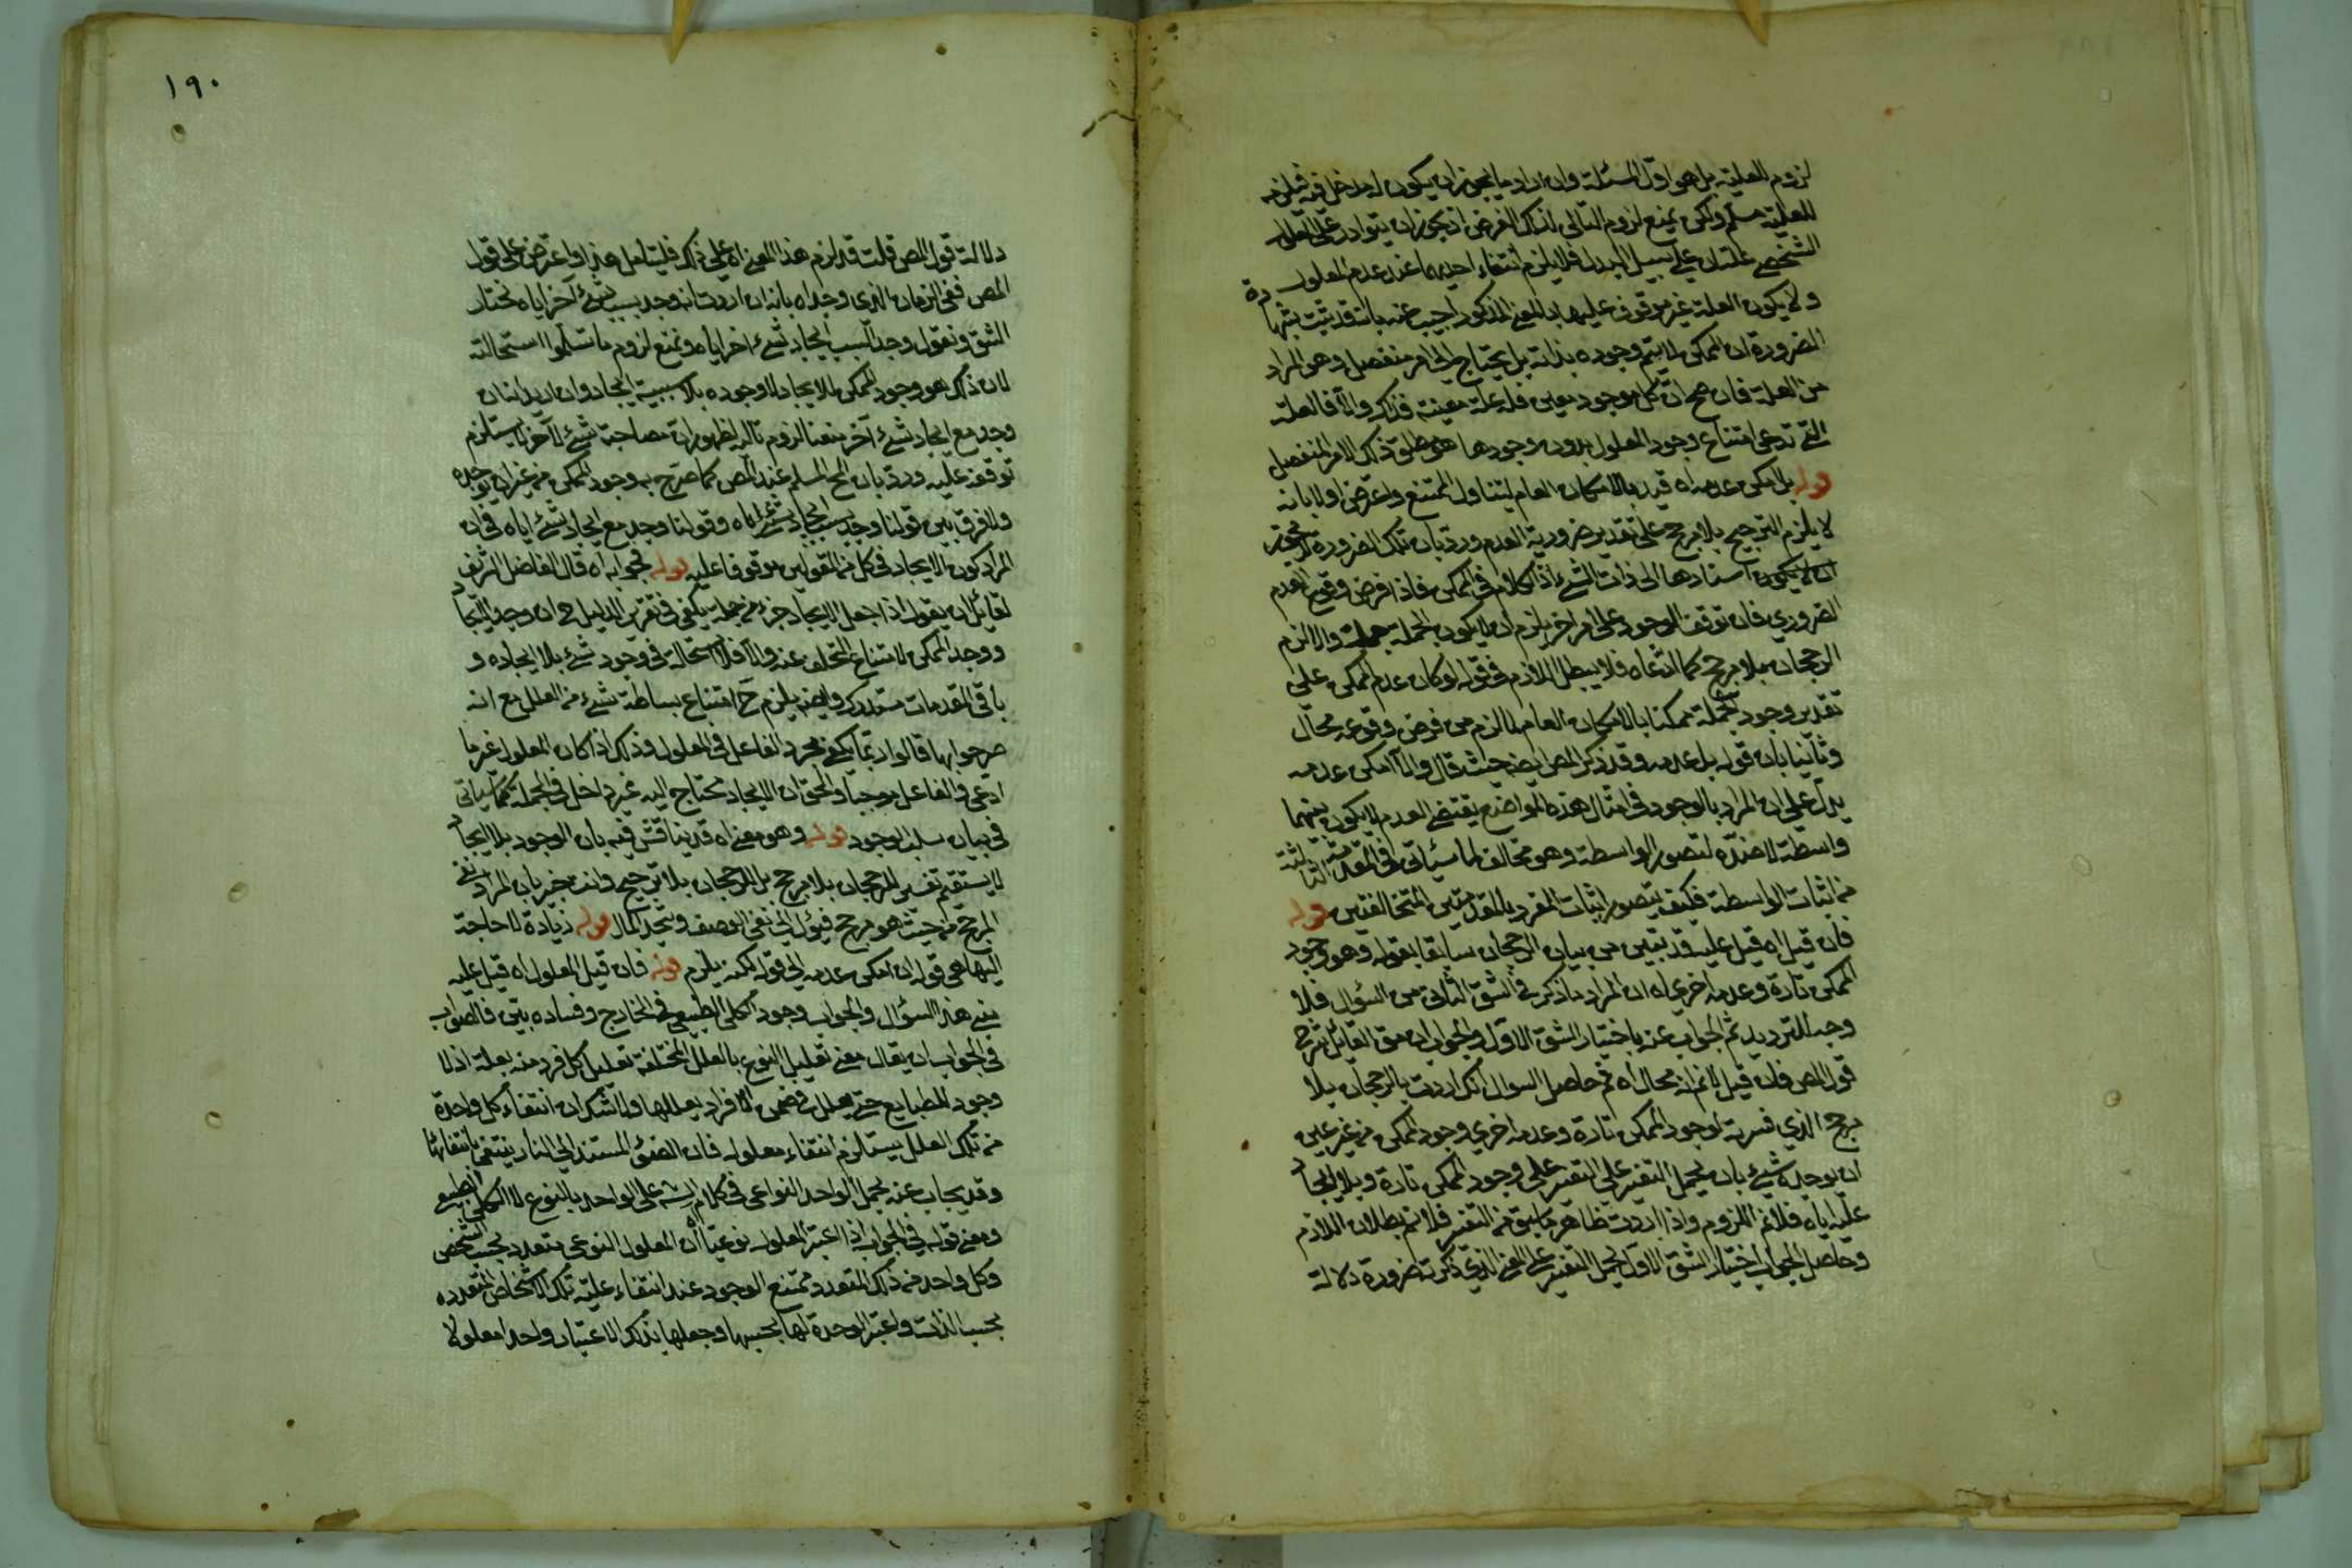 لزوم العلية بل هو اول المسئلة وان اراد ما يجوز ان يكون له مدخل فيه فيلزمه
للعلية مسلم ولكن يمنع لزوم التالى لذلك الفرض اذ يجوز ان يتوارد على المعلول
الشخصى علتان على سبيل البدل فلا يلزم من انتفاء احديهما عند عدم المعلول
ولا يكون العلة غير موقوف عليها بالمعنى المذكور اجيب عنه بانه قد ثبت بشهادة
الضرورة ان الممكن لا يتم وجوده بذاته بل يحتاج الى امر منفصل وهو المراد
من العلة فان صح ان كل موجود معين فله علة معينة فذاك والا فالعلة
التى ندعى امتناع وجود المعلول بدون وجودها هو مطلق ذلك الامر المنفصل
قوله بل امكن عدمه اه قيد بالامكان العام ليتناول الممتنع واعترض اولا بانه
لا يلزم الترجيح بلا مرجح على تقدير ضرورية العدم ورد بان تلك الضرورة
ان يكون اسنادها الى ذات الشىء اذ الكلام فى الممكن فاذا فرض وقوع العدم
الضرورى فان توقف الوجود على امر اخر يلزم ان لا يكون الجملة جملة والا لزم
الرجحان بلا مرجح كما ادعاه فلا يبطل اللازم فى قوله لو كان عدم الممكن على
تقدير وجود الجملة ممكنا بالامكان العام لما لزم من فرض وقوعه محال
وثانيا بان قوله بل عدمه وقد ذكر المص ايضا حيث قال والا امكن عدمه
يدل على ان المراد بالوجود فى امثال هذه المواضع نقيض العدم لا يكون بينهما
واسطة لا ضده لتصور الواسطة وهو مخالف لما سيأتى فى المقدمة الثالثة
من اثبات الواسطة فكيف يتصور اثبات المفرد بالمقدمتين المتخالفتين قوله
فان قيل اه قيل عليه قد تبين من بيان الرجحان سابقا بقوله وهو وجود
الممكن تارة وعدمه اخرى اه ان المراد ما ذكر فى الشق الثانى من السؤال فلا
وجه للترديد ثم الجواب عنه باختيار الشق الاول والجواب ان القائل شرح
قول المص فان قيل لا نم انه محال اه ثم حاصل السوال انك ان اردت بالرجحان بلا
مرجح الذي فسرته بوجود الممكن تارة وعدمه اخرى وجود الممكن من غير
ان يوجده شىء بان يحمل التفسير على وجود الممكن تارة وبلا ايجاد
علته اياه فلا نم اللزوم واذا اردت ظاهر ما سبق من التفسير فلا نم بطلان اللازم
وحاصل الجواب اختيار الشق الاول بحمل التفسير على المعنى الذي ذكرته ضرورة دلالة
١٩٠
دلالة قول المص قلت قد لزم هذا المعنى اه على ذلك فليتأمل هذا واعترض على قول
المص ففى الزمان الذى وجد اه بانه ان اردت انه وجد بسبب شىء آخر اياه نختار
الشق ونقول وجد لا بسبب ايجاد شىء اخر اياه ونمنع لزوم ما سلموا استحالته
لان ذلك هو وجود الممكن بلا ايجاد لا وجوده بلا سببية ايجاد وان اريد انه
وجد مع ايجاد شىء آخر منعنا لزوم تاليه لظهور ان مصاحبة شىء لآخر لا يستلزم
توقفه عليه ورد بان المحال المسلم عند المص كما صرح به وجود الممكن من غير ان يوجده
ولا فرق بين قولنا وجد بسبب ايجاد شىء اياه وقولنا وجد مع ايجاد شىء اياه فى ان
المراد كون الايجاد فى كل من القولين موقوفا عليه قوله فجوابه اه قال الفاضل الشريف
لقائل ان يقول اذا جعل الايجاد جزءا من جملة يكفى فى تقرير الدليل ح ان وجد الايجاد
ووجد الممكن لامتناع التخلف عنه والا فلا استحالة فى وجود شىء بلا ايجاده و
باقى المقدمات مستدرك وايضا يلزم ح امتناع بساطة شىء من العلل مع انه
صرحوا بها قالوا ربما يكفى مجرد الفاعل فى المعلول وذلك اذا كان المعلول غير ما
ادعى والفاعل موجبا والحق ان الايجاد محتاج اليه غير داخل فى الجملة كما سيأتى
فى بيان سلب الوجود قوله وهو معنى اه قد يناقش فيه بان الوجود بلا ايجاد
لا يستقيم تفسير للرجحان بلا مرجح بل للرجحان بلا ترجيح وانت خبير بان المراد نفى
المرجح من حيث هو مرجح فيؤل الى نفى الوصف ويتحد المآل قوله زيادة لا حاجة
اليها هى قوله ان امكن عدمه الى قوله لكنه يلزم قوله فان قيل المعلول اه قيل عليه
مبنى هذا السؤال والجواب وجود الكلى الطبيعى فى الخارج وفساده بين فالصواب
فى الجواب ان يقال معنى تعليل النوع بالعلل المختلفة تعليل كل فرد منه بعلة اذ لا
وجود للطبايع حتى يعلل فى ضمن الافراد بعللها ولا شك ان انتفاء كل واحدة
من تلك العلل يستلزم انتفاء معلوله فان الضوء المستند الى النار ينتفى بانتفائها
وقد يجاب عنه بحمل الواحد النواعى فى كلام الش على الواحد بالنوع لا الكلى الطبيعى
ومعنى قوله فى الجواب اذا اعتبر المعلول نوعيا ان المعلول النوعى متعدد بحسب الشخص
وكل واحد من ذلك المتعدد ممتنع الوجود عند انتفاء علته تلك الاشخاص المتعدده
بحسب الذات واعتبر الوحدة لها بحسبها وجعلها بذلك الاعتبار واحدا معلولا